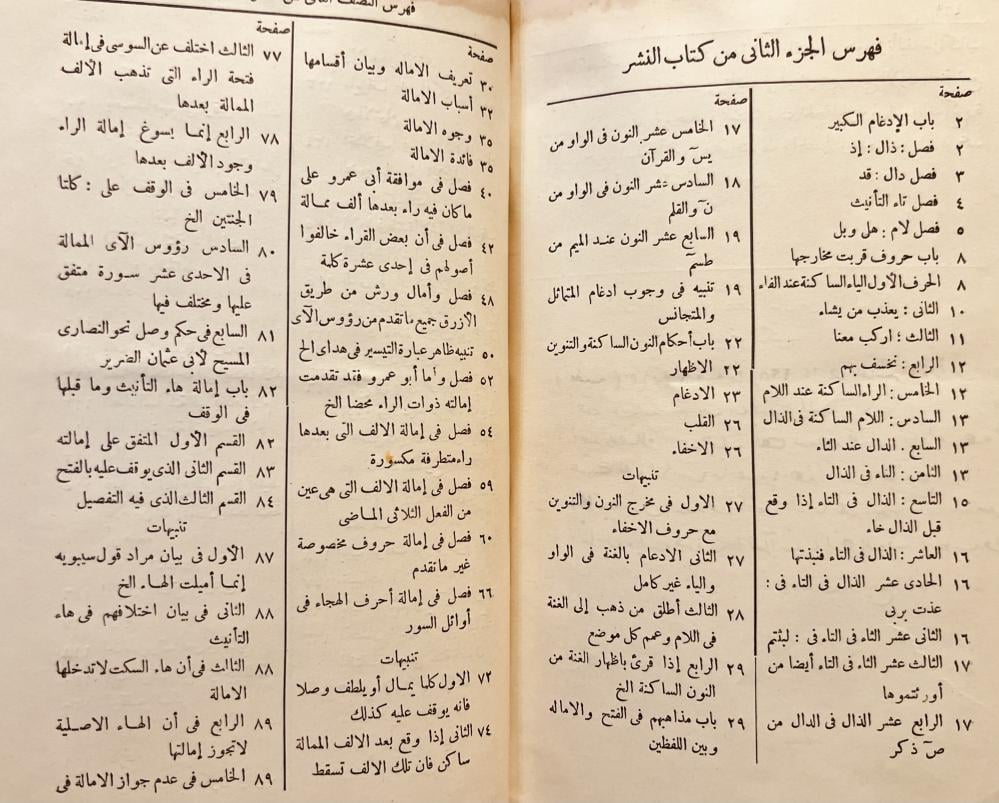 فهرس الجزء الثانى من كتاب النشر
صفحة
٢ باب الإدغام الكبير
٢ فصل : ذال : إذ
٣ فصل دال : قد
٤ فصل تاء التأنيث
٥ فصل لام : هل وبل
٨ باب حروف قربت مخارجها
٨ الحرف الأول الباء الساكنة عند الفاء
١٠ الثانى : يعذب من يشاء
١١ الثالث : اركب معنا
١٢ الرابع : نخسف بهم
١٢ الخامس : الراء الساكنة عند اللام
١٣ السادس : اللام الساكنة فى الذال
١٣ السابع . الدال عند الثاء
١٣ الثامن : الثاء فى الذال
١٥ التاسع : الذال فى التاء إذا وقع
قبل الذال خاء
١٦ العاشر : الذال فى التاء فنبذتها
١٦ الحادى عشر الذال فى التاء فى :
عذت بربى
١٦ الثانى عشر الثاء فى التاء فى : لبثتم
١٧ الثالث عشر الثاء فى التاء أيضا من
أورثتموها
١٧ الرابع عشر الذال فى الدال من
صٓ ذكر
صفحة
١٧ الخامس عشر النون فى الواو من
يسٓ والقرآن
١٨ السادس عشر النون فى الواو من
نٓ والقلم
١٩ السابع عشر النون عند الميم من
طسٓمٓ
١٩ تنبيه فى وجوب ادغام المتماثل
والمتجانس
٢٢ باب أحكام النون الساكنة والتنوين
٢٢ الاظهار
٢٣ الادغام
٢٦ القلب
٢٦ الاخفاء
تنبيهات
٢٧ الاول فى مخرج النون والتنوين
مع حروف الاخفاء
٢٧ الثانى الادغام بالغنة فى الواو
والياء غير كامل
٢٨ الثالث أطلق من ذهب إلى الغنة
فى اللام وعمم كل موضع
٢٩ الرابع إذا قرئ باظهار الغنة من
النون الساكنة الخ
٢٩ باب مذاهبهم فى الفتح والاماله
وبين اللفظين
فهرس النصف الثانى من
صفحة
٣٠ تعريف الاماله وبيان أقسامها
٣٢ أسباب الامالة
٣٥ وجوه الامالة
٣٥ فائدة الامالة
٤٠ فصل فى موافقة أبى عمرو على
ما كان فيه راء بعدها ألف ممالة
٤٢ فصل فى أن بعض القراء خالفوا
أصولهم فى إحدى عشرة كلمة
٤٨ فصل وأمال ورش من طريق
الأزرق جميع ما تقدم من رؤوس الآى
٥٠ تنبيه ظاهر عبارة التيسير فى هداى الخ
٥٢ فصل وأما أبو عمرو فقد تقدمت
إمالته ذوات الراء محضا الخ
٥٤ فصل فى إمالة الالف التى بعدها
راء متطرفة مكسورة
٥٩ فصل فى إمالة الالف التى هى عين
من الفعل الثلاثى الماضى
٦٠ فصل فى إمالة حروف مخصوصة
غير ما تقدم
٦٦ فصل فى إمالة أحرف الهجاء فى
أوائل السور
تنبيهات
٧٢ الاول كلما يمال أو يلطف وصلا
فانه يوقف عليه كذلك
٧٤ الثانى إذا وقع بعد الالف الممالة
ساكن فان تلك الالف تسقط
صفحة
٧٧ الثالث اختلف عن السوسى فى إمالة
فتحة الراء التى تذهب الألف
الممالة بعدها
٧٨ الرابع إنما يسوغ إمالة الراء
وجود الألف بعدها
٧٩ الخامس فى الوقف على : كلتا
الجنتين الخ
٨٠ السادس رؤوس الآى الممالة
فى الاحدى عشر سورة متفق
عليها ومختلف فيها
٨١ السابع فى حكم وصل نحو النصارى
المسيح لأبى عثمان الضرير
٨٢ باب إمالة هاء التأنيث وما قبلها
فى الوقف
٨٢ القسم الأول المتفق على إمالته
٨٣ القسم الثانى الذى يوقف عليه بالفتح
٨٤ القسم الثالث الذى فيه التفصيل
تنبيهات
٨٧ الأول فى بيان مراد قول سيبويه
إنما أميلت الهاء الخ
٨٨ الثانى فى بيان اختلافهم فى هاء
التأنيث
٨٨ الثالث فى أن هاء السكت لا تدخلها
الامالة
٨٩ الرابع فى أن الهاء الاصلية
لا تجوز إمالتها
٨٩ الخامس فى عدم جواز الامالة فى